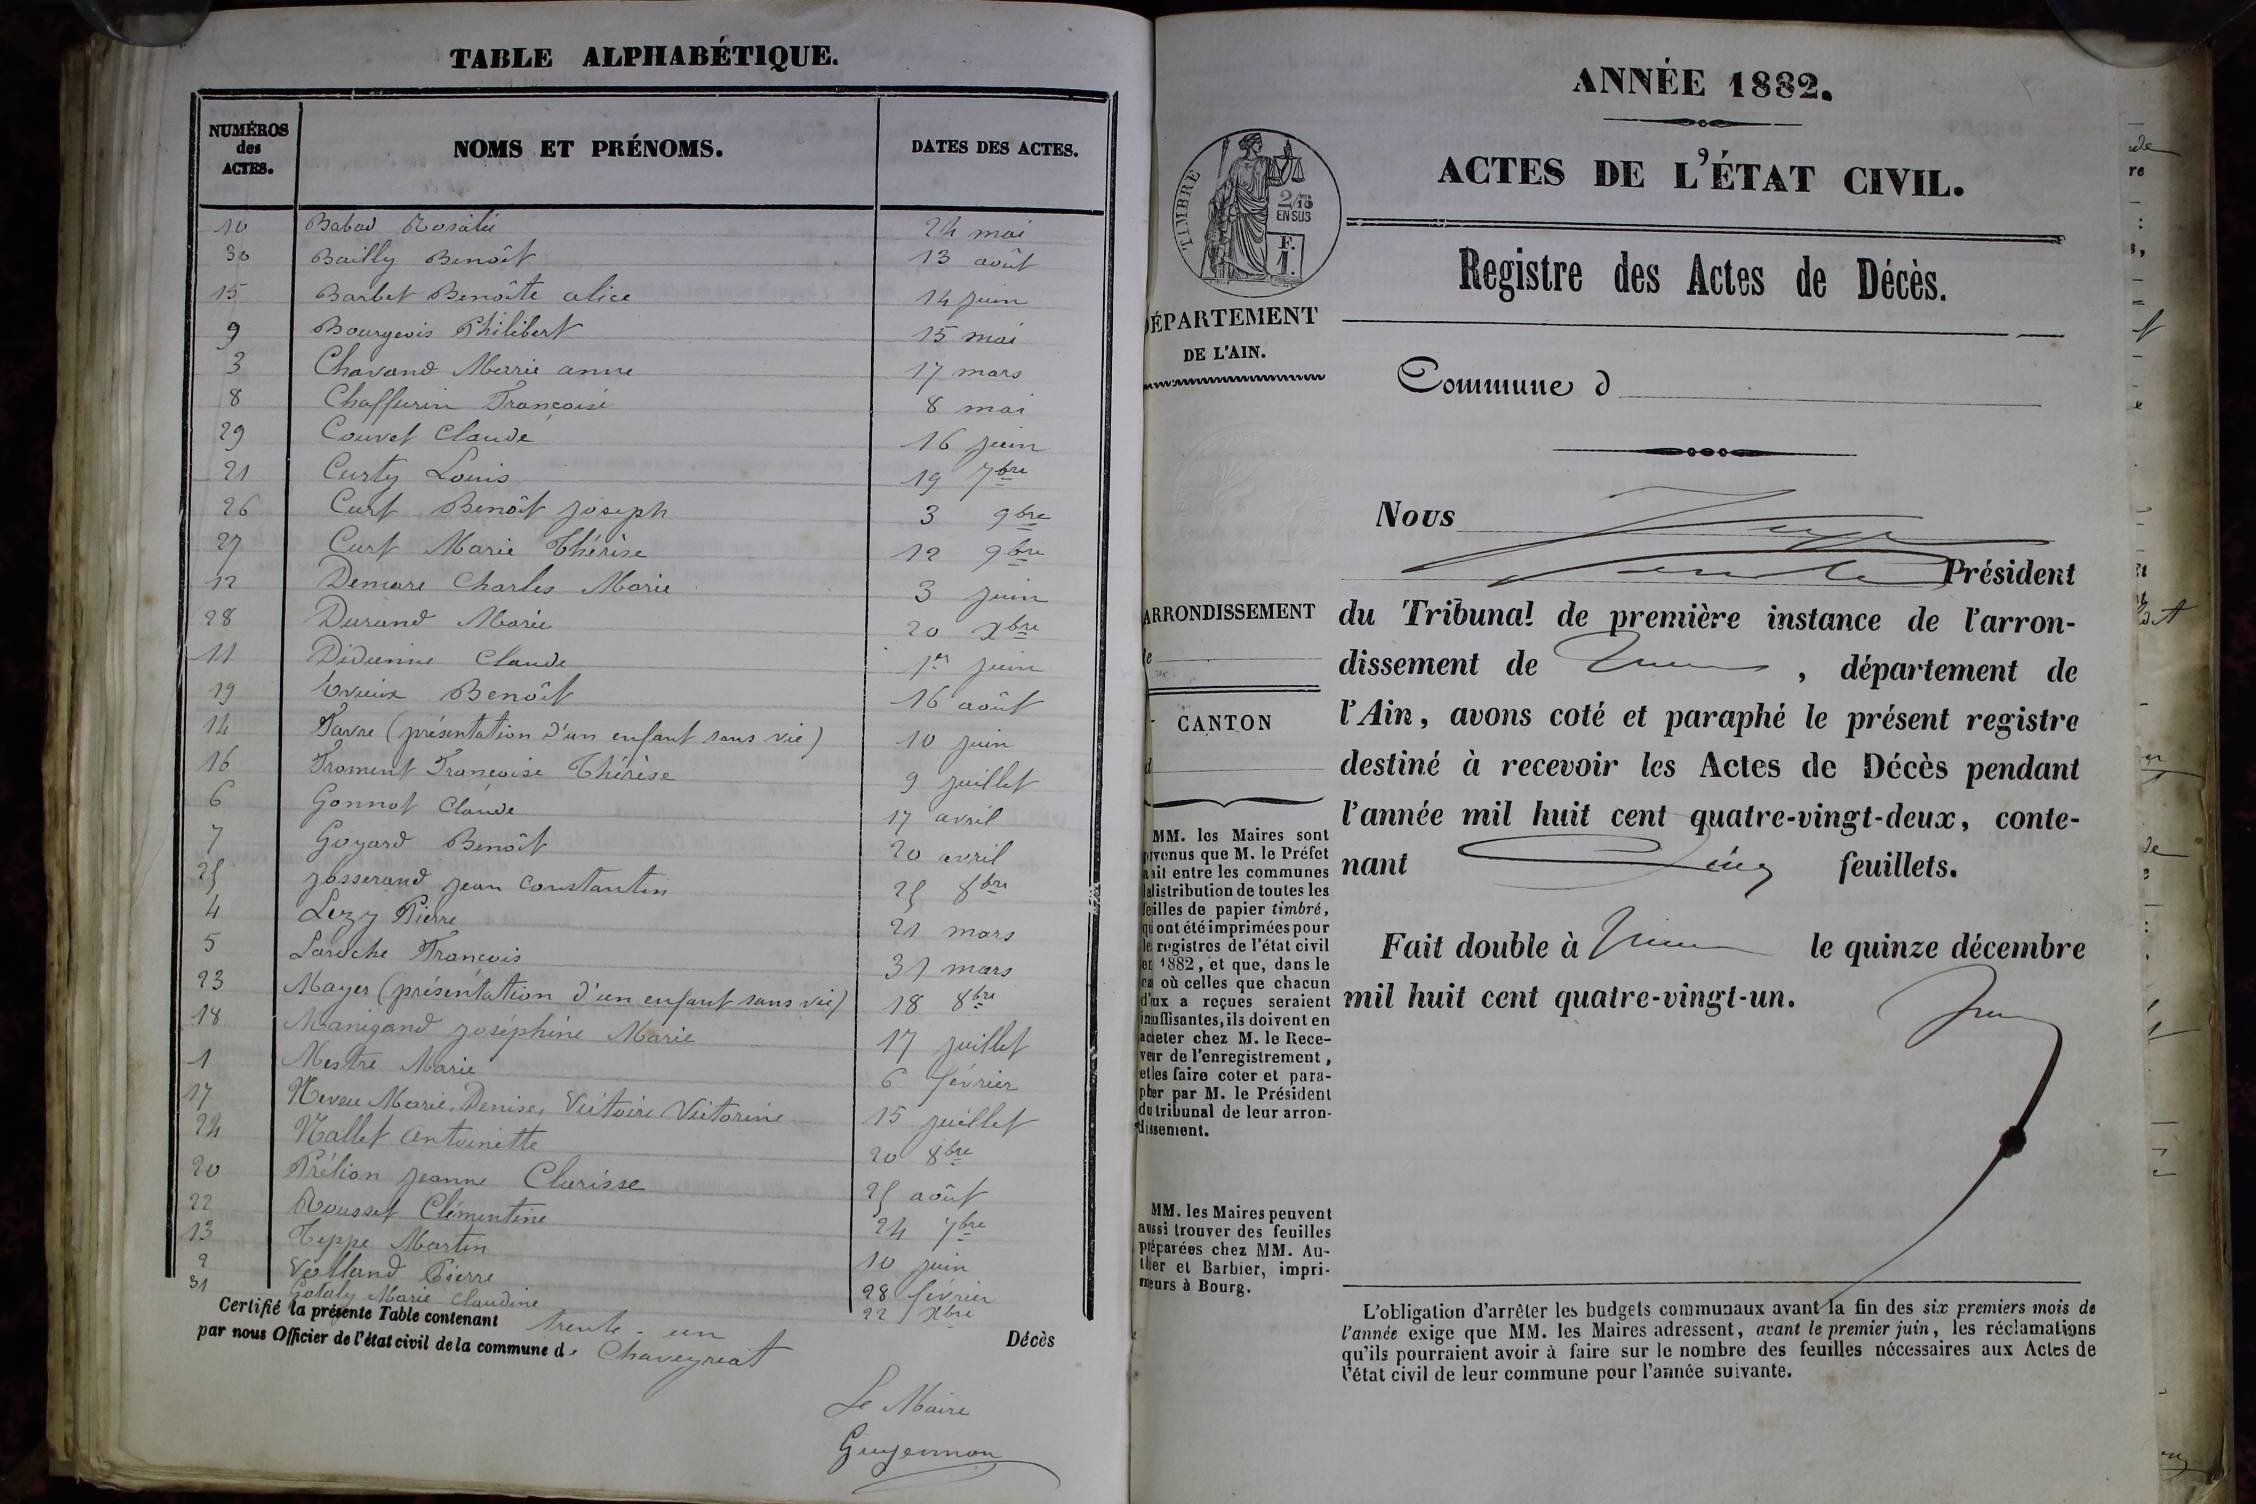 TABLE ALPHABÉTIQUE.
NUMÉROS des ACTES. NOMS ET PRÉNOMS. DATES DES ACTES.
10 Babad Rosalie 24 mai
30 Bailly Benoît 13 août
15 Barbet Benoîte alice 14 juin
9 Bourgeois Philibert 15 mai
3 Chavand Marie anne 17 mars
8 Chaffurin Françoise 8 mai
29 Couvet Claude 16 juin
21 Curty Louis 19 7bre
26 Curt Benoît joseph 3 9bre
27 Curt Marie Thérèse 12 9bre
12 Demare Charles Marie 3 juin
28 Durand Marie 20 xbre
11 Claude 1er juin
19 Benoît 16 août
14 Favre (présentation d'un enfant sans vie) 10 juin
16 Froment Françoise Thérèse 9 juillet
6 Gonnot Claude 17 avril
7 Goyard Benoît 20 avril
25 Josserand jean constantin 25 8bre
4 Lezy Pierre 21 mars
5 Laroche François 31 mars
23 Mayer (présentation d'un enfant sans vie) 18 8bre
18 Manigand joséphine Marie 17 juillet
1 Mestre Marie 6 février
17 Neveu Marie, Denise, Victoire Victorine 15 juillet
24 Nallet antoinette 20 8bre
20 Prélion jeanne Clarisse 25 août
22 Rousset Clémentine 24 7bre
13 Teppe Martin 10 juin
2 Volland Pierre 28 février
31 Gotaly Marie claudine 22 xbre
Certifié la présente Table contenant trente-un Décès
par nous Officier de l'état civil de la commune de Chaveyriat
Le Maire
Guyennon
ANNÉE 1882.
ACTES DE L'ÉTAT CIVIL.
TIMBRE
2/10 EN SUS
F. 1.
Registre des Actes de Décès.
DÉPARTEMENT
DE L'AIN.
Commune d
Nous
Président
ARRONDISSEMENT
du Tribunal de première instance de l'arron-
dissement de , département de
CANTON
d
l'Ain, avons coté et paraphé le présent registre
destiné à recevoir les Actes de Décès pendant
l'année mil huit cent quatre-vingt-deux, conte-
nant Cinq feuillets.
Fait double à le quinze décembre
mil huit cent quatre-vingt-un.
MM. les Maires sont
prévenus que M. le Préfet
a fait entre les communes
la distribution de toutes les
feuilles de papier timbré,
qui ont été imprimées pour
les registres de l'état civil
en 1882, et que, dans le
cas où celles que chacun
d'eux a reçues seraient
insuffisantes, ils doivent en
acheter chez M. le Rece-
veur de l'enregistrement,
et les faire coter et para-
pher par M. le Président
du tribunal de leur arron-
dissement.
MM. les Maires peuvent
aussi trouver des feuilles
préparées chez MM. Au-
thier et Barbier, impri-
meurs à Bourg.
L'obligation d'arrêter les budgets communaux avant la fin des six premiers mois de
l'année exige que MM. les Maires adressent, avant le premier juin, les réclamations
qu'ils pourraient avoir à faire sur le nombre des feuilles nécessaires aux Actes de
l'état civil de leur commune pour l'année suivante.